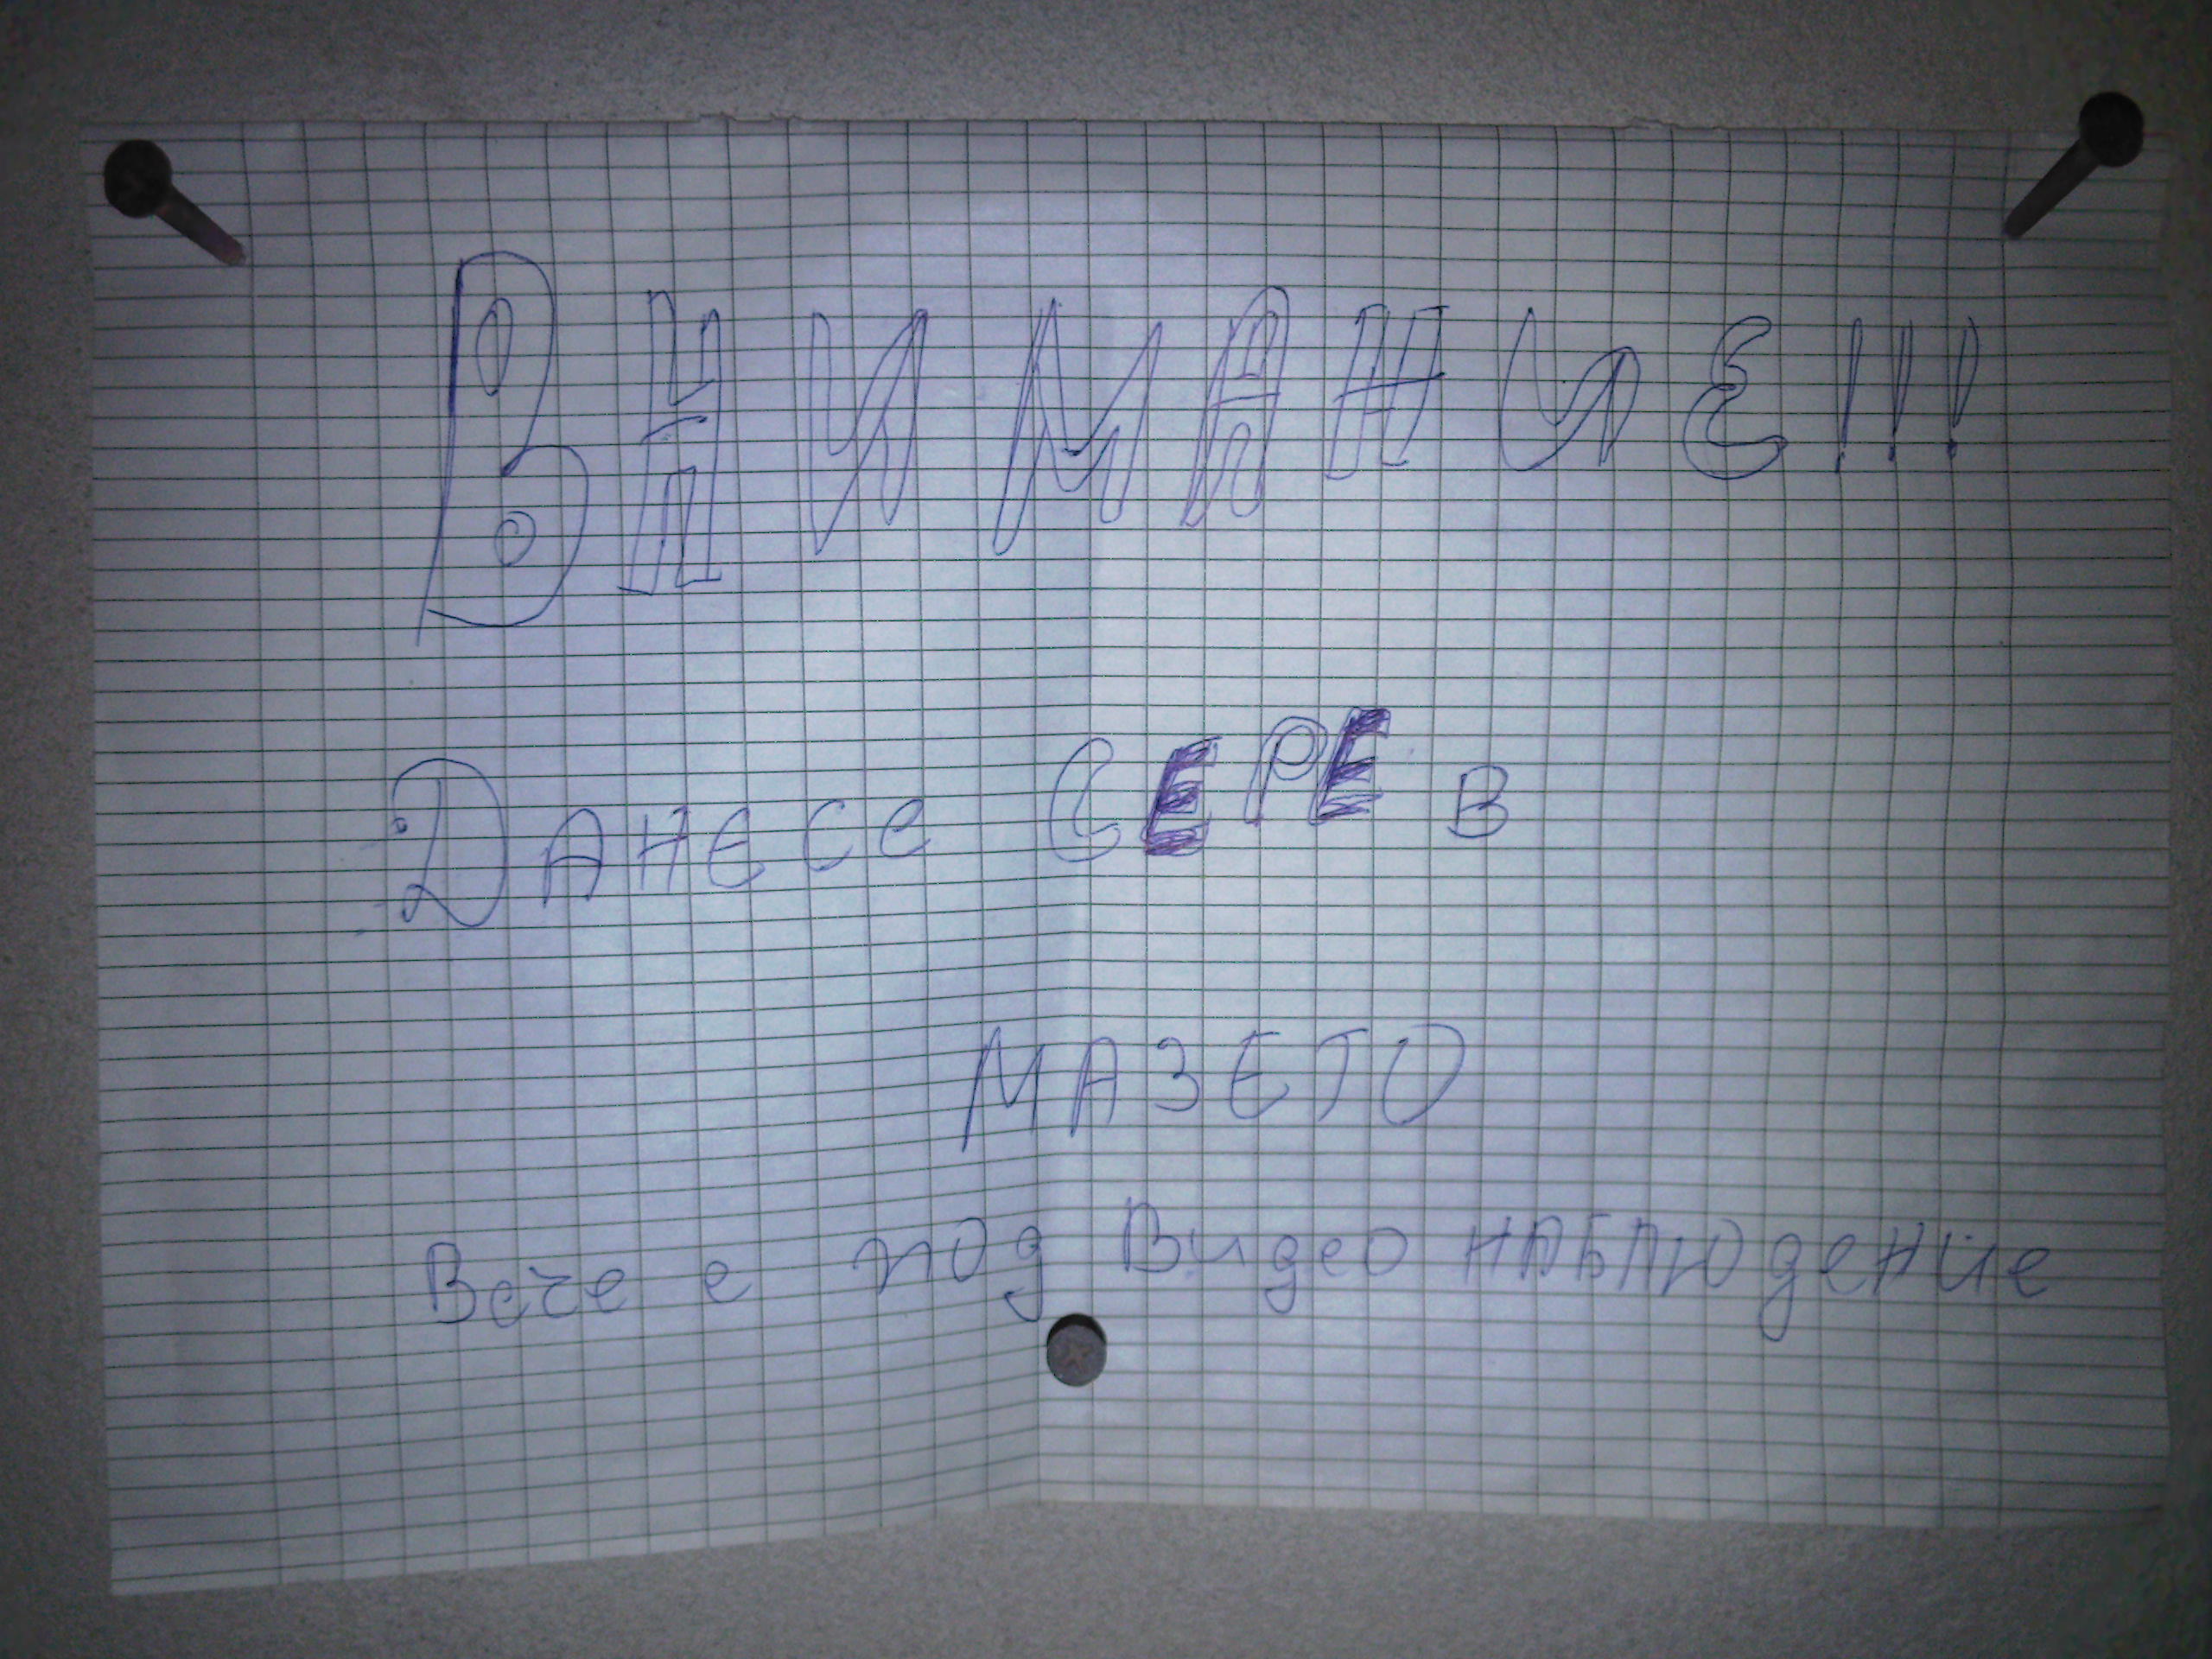 Внимание!!!
Данесе СЕРЕ в
МАЗЕТО
Вече е под Видео наблюдение